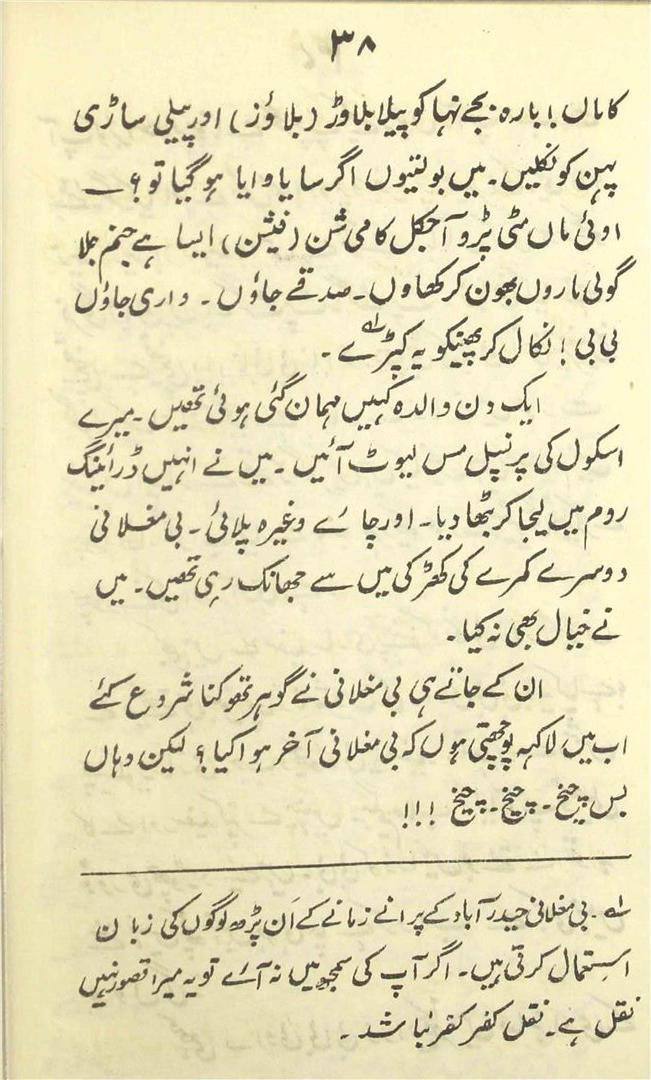 ۳۸
کاماں! بارہ بجے نہا کو پیلا بلاوڑ (بلاؤز) اور پیلی ساڑی
پہن کو نکلیں۔ میں بولتیوں اگر سایا وایا ہو گیا تو؟ —
اوئی ماں مٹی پڑو آجکل کا می شن (فیشن) ایسا ہے جنم جلا
گولی ماروں بھون کر کھاوں۔ صدقے جاؤں۔ واری جاؤں
بی بی! نکال کر پھینکو یہ کپڑے ؎۱۔
ایک دن والدہ کہیں مہمان گئی ہوئی تھیں۔ میرے
اسکول کی پرنسپل مس لیوٹ آئیں۔ میں نے انہیں ڈرائینگ
روم میں لیجا کر بٹھا دیا۔ اور چائے وغیرہ پلائی۔ بی مغلانی
دوسرے کمرے کی کھڑکی میں سے جھانک رہی تھیں۔ میں
نے خیال بھی نہ کیا۔
ان کے جاتے ہی بی مغلانی نے گوہر تھوکنا شروع کئے
اب میں لاکہہ پوچھتی ہوں کہ بی مغلانی آخر ہوا کیا؟ لیکن وہاں
بس چیخ۔ چیخ۔ چیخ !!!
؎۱۔ بی مغلانی حیدرآباد کے پرانے زمانے کے اَن پڑھ لوگوں کی زبان
استمال کرتی ہیں۔ اگر آپ کی سمجھ میں نہ آئے تو یہ میرا قصور نہیں
نقل ہے۔ نقل کفر کفر نباشد۔